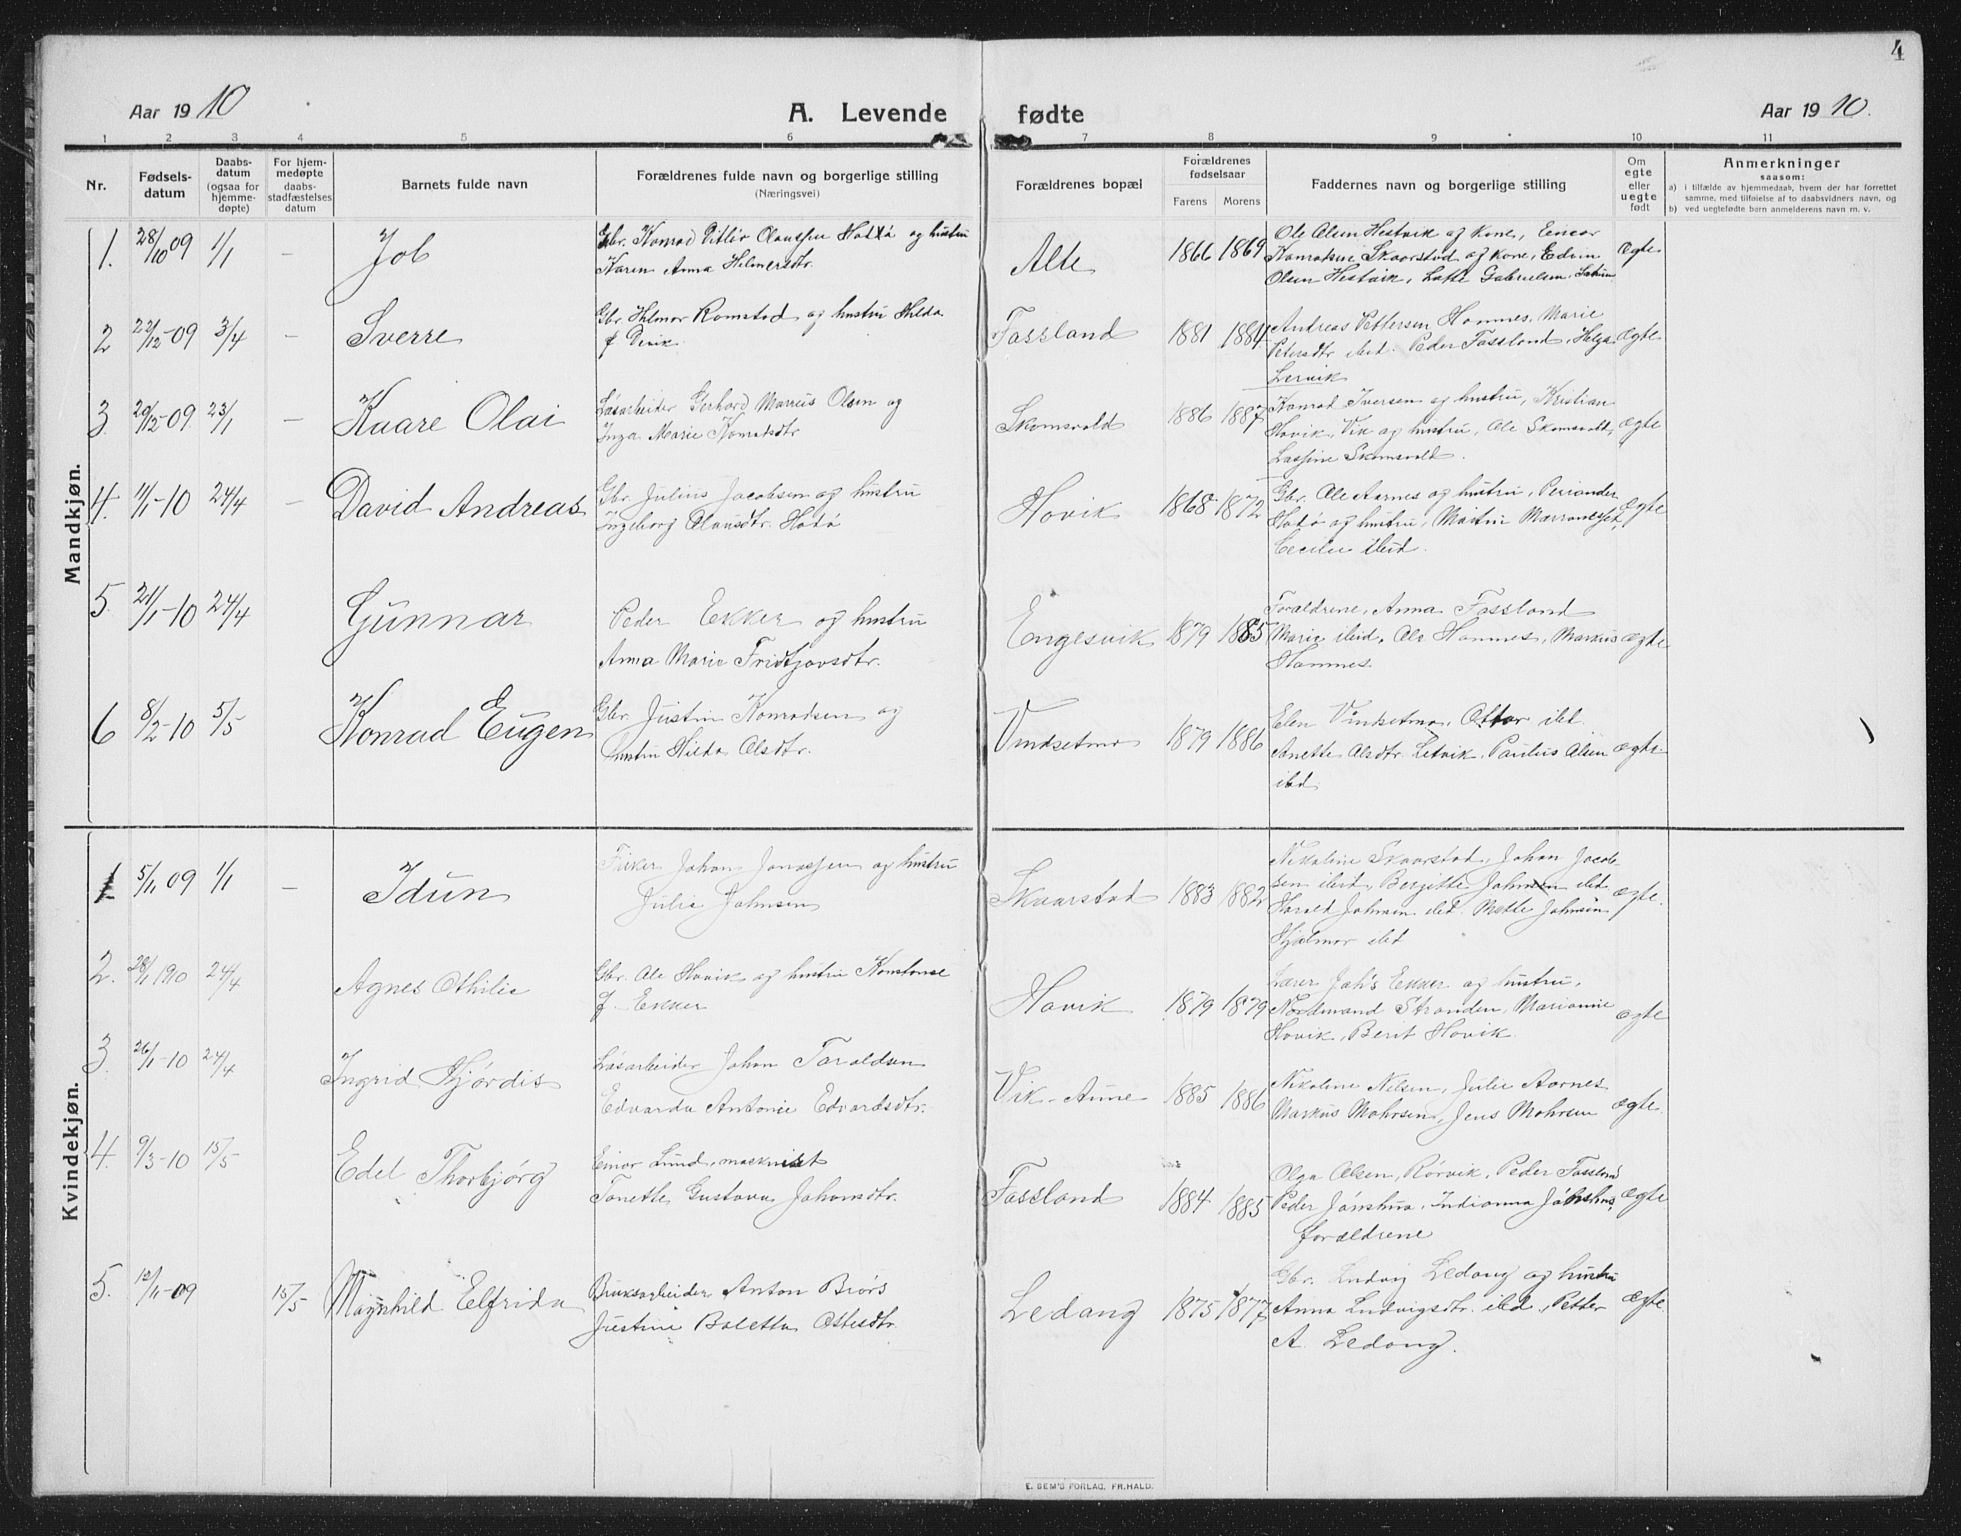 4
Aar 1910
A. Levende fødte
Aar 1910.
1 2 3 4 5 6 7 8 9 10 11
Nr.
Fødsels-
datum
Daabs-
datum
(ogsaa for
hjemme-
døpte)
For hjem-
medøpte
daabs-
stadfæstelses
datum
Barnets fulde navn
Forældrenes fulde navn og borgerlige stilling
(Næringsvei)
Forældrenes bopæl
Forældrenes
fødselsaar
Farens Morens
Faddernes navn og borgerlige stilling
Om
egte
eller
uegte
født
Anmerkninger
saasom:
a) i tilfælde av hjemmedaab, hvem der har forrettet
samme, med tilføielse af to daabsvidners navn, og
b) ved uegtefødte barn anmelderens navn m. v.
Mandkjøn.
1. 28/10 09 1/1 — Job
Gbr. Konrad Olaussen Hodø og hustru
Karen Anna Helmersdtr.
Alte 1866 1869
Ole Olsen Hestvik og kone, Einar
Skaarstad og kone, Edvin
Olsen Hestvik, Gabrielsen
ægte
2 22/12 09 3/4 — Sverre
Gbr. Hilmar Romstad og hustru Hilda
f.
Fossland 1881 1884
Andreas Pettersen Hamnes, Marie
Petersdtr ibid. Peder Fossland, Helga
Lervik
ægte
3. 29/12-09 23/1 — Kaare Olai
Løsarbeider Gerhard Marius Olsen og
Inga Marie Konradsdtr
Skomsvold 1886 1887
Konrad Iversen og hustru, Kristian
Hovik, Vik og hustru, Ole Skomsvold,
Skomsvold.
ægte
4. 11/1-10 24/4 — David Andreas
Gbr. Julius Jacobsen og hustru
Ingeborg Olausdtr. Hodø
Hovik 1868 1872
Gbr. Ole Aarnes og hustru, Periander
Hodø og hustru, Martin
Cecilie ibid.
ægte
5. 21/1-10 24/4 Gunnar
Peder Ekker og hustru
Anna Marie Fridtjovsdtr.
Engesvik 1879 1885
Forældrene, Anna Fossland
Marie ibid, Ole Hamnes, Markus
Hamnes.
ægte
6 8/2-10 5/5 Konrad Eugen
Gbr. Justin Konradsen og
hustru Hilda Olsdtr.
Vindsetmo 1879 1886
Elen Vindsetmo, Ottar ibd.
Anette Olsdtr. Letvik, Paulus Olsen
ibd.
ægte
Kvindekjøn.
1 5/11 09 1/1 — Idun
Fisker Johan Jonassen og hustru
Julie Johnsen
Skaarstad 1883 1882
Nikoline Skaarstad, Johan Jacob-
sen ibid, Bergitte Johnsen ibd,
Harald Johnsen ibd. Mette Johnsen,
Hjalmar ibd
ægte.
2. 28/1 1910 24/4 Agnes Othilie
Gbr. Ole Hovik og hustru Konstanse
f. Ekker
Hovik 1879 1879
Lærer Johs Ekker og hustru,
Nordmand Stranden, Marianne
Hovik, Berit Hovik
ægte
3. 26/1-10 24/4 Ingrid Hjørdis
Løsarbeider Johan Toraldsen
Edvarda Antonie Edvardsdtr.
Vik-Aune 1885 1886
Nikoline Nilsen, Julie Aarnes
Markus Mohrsen, Jens Mohrsen
ægte.
4. 9/3-10 15/5 Edel Thorbjørg
Einar Lund, maskinist
Tonette Gustava Johansdtr.
Fossland 1884 1885
Olga Olsen, Rörvik, Peder Fossland
Peder Jónshus, Indianna Jónshus,
forældrene
ægte
5. 12/11-09 15/5 Magnhild Elfrida
Bruksarbeider Anton Brørs
Justine Baletta Ottesdtr.
Ledang 1875 1877
Gbr. Ludvig Ledang og hustru
Anna Ludvigsdtr. ibd, Petter
A. Ledang.
ægte
E. SEM'S FORLAG, FR.HALD.